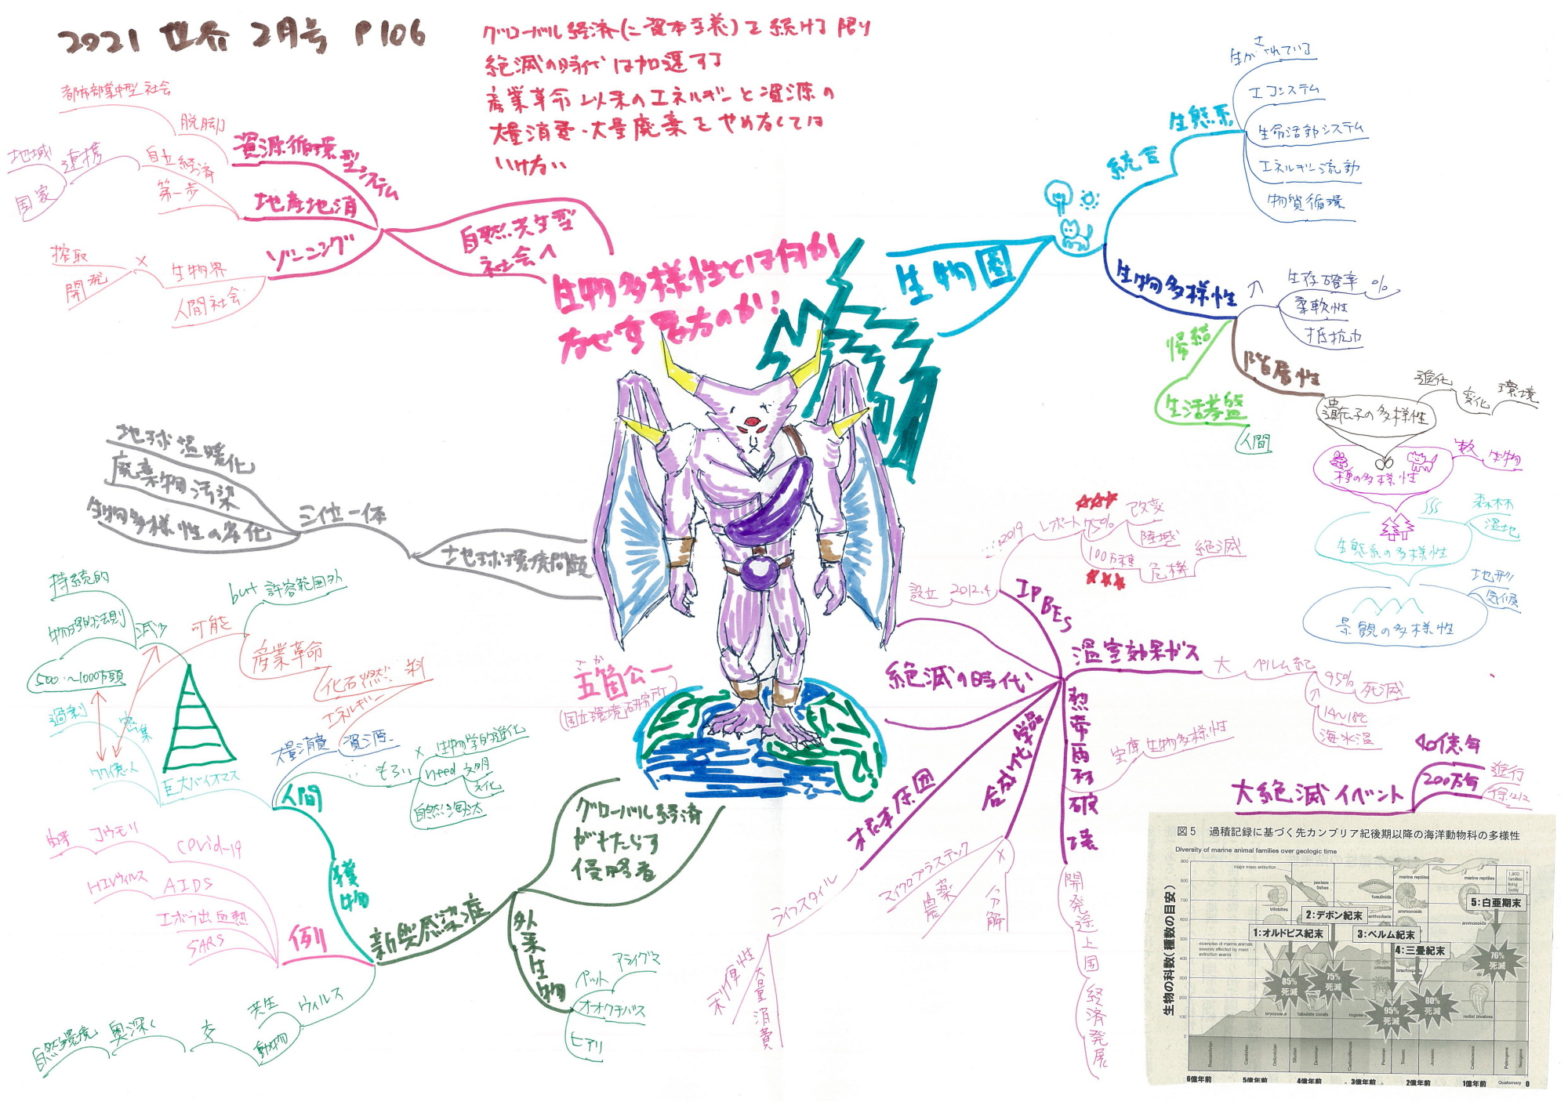 2021 世界 2月号 P106
グローバル経済(＝資本主義)を続ける限り
絶滅の時代は加速する
産業革命以来のエネルギーと資源の
大量消費・大量廃棄をやめなくては
いけない
生物多様性とは何か
なぜ重要なのか!
五箇公一
ごか
(国立環境研究所)
生物圏
統合
生態系
生かされている
エコシステム
生命活動システム
エネルギー流動
物質循環
生物多様性
↗
生存確率
%
柔軟性
抵抗力
帰結
生活基盤
人間
階層性
遺伝子の多様性
進化
変化
環境
種の多様性
数
生物
生態系の多様性
森林
湿地
景観の多様性
地形
気候
絶滅の時代
IPBES
設立 2012.4
...2019
レポート
75%
改変
陸域
100万種
危機
絶滅
温室効果ガス
大
ペルム紀
95%
死滅
↑
14〜18℃
海水温
熱帯雨林破壊
宝庫 生物多様性
開発途上国
経済発展
合成化学品
マイクロプラスチック
農薬
×
分解
根本原因
ライフスタイル
利便性
大量消費
大絶滅イベント
40億年
200万年
進行
図5 過積記録に基づく先カンブリア紀後期以降の海洋動物科の多様性
Diversity of marine animal families over geologic time
生物の科数(種数の目安)
900
800
700
600
500
400
300
200
100
0
major mass extinction
marine reptiles
marine reptiles
trilobites
ammonoids
1：オルドビス紀末
2：デボン紀末
3：ペルム紀末
4：三畳紀末
5：白亜期末
85%死滅
75%死滅
95%死滅
80%死滅
76%死滅
6億年前
5億年前
4億年前
3億年前
2億年前
1億年前
0
Quaternary
グローバル経済
がもたらす
侵略者
外来生物
ペット
アライグマ
オオクチバス
ヒアリ
新興感染症
ウィルス
共生
動物
奥深く
自然環境
例
covid-19
コウモリ
由来
AIDS
HIVウィルス
エボラ出血熱
SARS
獲物
人間
巨大バイオマス
77億人
過剰
密集
500〜1000万頭
物理的法則
持続的
減少
可能
but 許容範囲外
産業革命
化石燃料
エネルギー
大量消費
資源
...もろい
×
生物学的進化
need
文明
文化
自然淘汰
地球環境問題
三位一体
地球温暖化
廃棄物汚染
生物多様性の劣化
自然共生型
社会へ
資源循環型システム
脱却
都市部集中型社会
地産地消
自立経済
第一歩
連携
地域
国家
ゾーニング
生物界
人間社会
×
搾取
開発